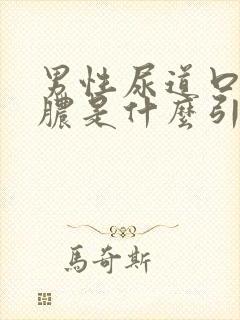 男性尿道口
膿是什麼引
馬奇斯